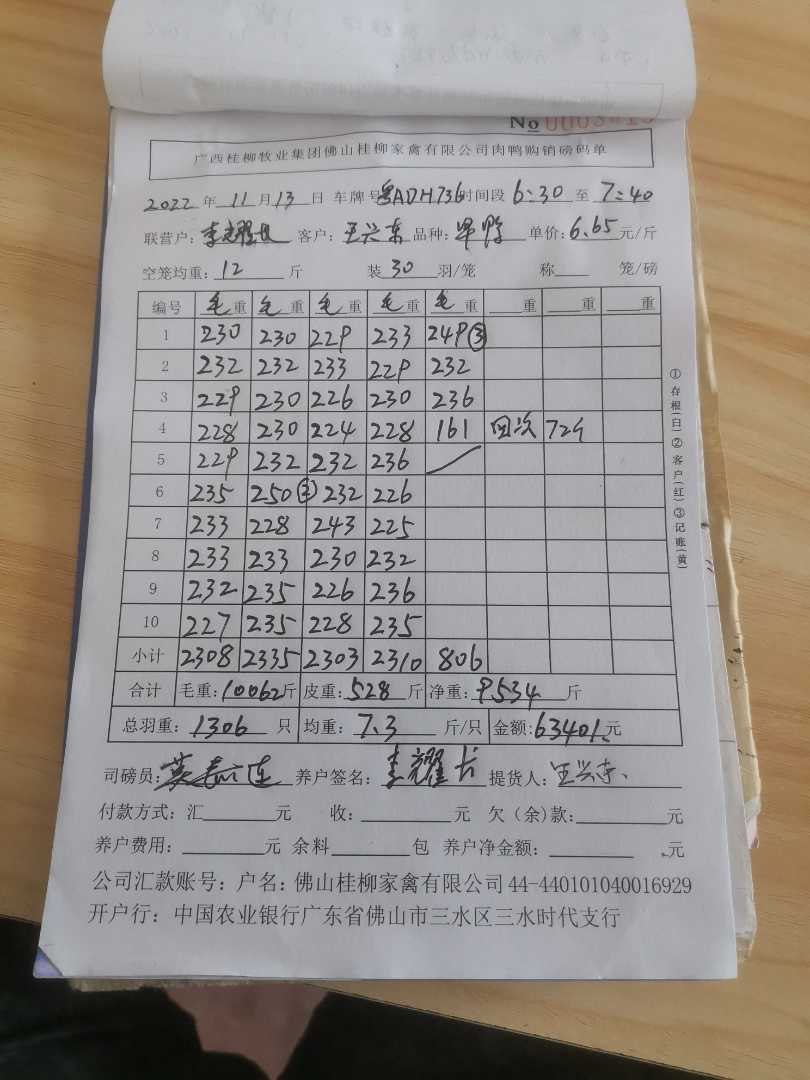 No
广西桂柳牧业集团佛山桂柳家禽有限公司肉鸭购销磅码单
2022 年 11 月 13 日 车牌号 粤ADH736 时间段 6:30 至 7:40
联营户: 李耀长 客户: 王兴东 品种: 旱鸭 单价: 6.65 元/斤
空笼均重: 12 斤 装 30 羽/笼 称 笼/磅
编号 毛重 毛重 毛重 毛重 毛重 重 重 重
1 230 230 229 233 249③
2 232 232 233 229 232
3 229 230 226 230 236
4 228 230 224 228 161 四次 72斤
5 229 232 232 236
6 235 250③ 232 226
7 233 228 243 225
8 233 233 230 232
9 232 235 226 236
10 227 235 228 235
小计 2308 2335 2303 2310 806
合计 毛重: 10062 斤 皮重: 528 斤 净重: 9534 斤
总羽重: 1306 只 均重: 7.3 斤/只 金额: 63401 元
司磅员: 养户签名: 李耀长 提货人: 王兴东
付款方式: 汇 元 收: 元 欠(余)款: 元
养户费用: 元 余料 包 养户净金额: 元
公司汇款账号: 户名: 佛山桂柳家禽有限公司 44-440101040016929
开户行: 中国农业银行广东省佛山市三水区三水时代支行
①存根(白)②客户(红)③记账(黄)